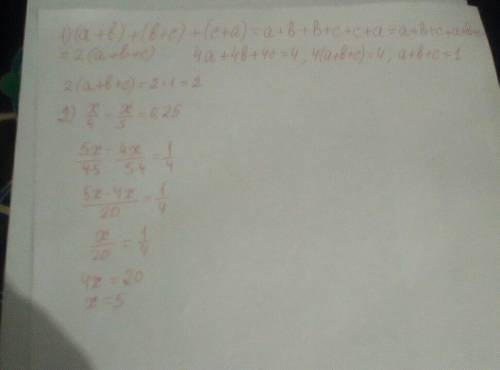 1) (a+b)+(b+c)+(c+a)=a+b+b+c+c+a=a+b+c+a+b+c=
=2(a+b+c) 4a+4b+4c=4, 4(a+b+c)=4, a+b+c=1
2(a+b+c)=2·1=2
2) x/4 - x/5 = 0,25
5x/4·5 - 4x/5·4 = 1/4
5x-4x/20 = 1/4
x/20 = 1/4
4x=20
x=5